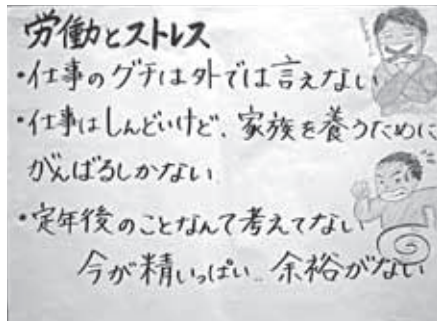 労働とストレス
・仕事のグチは外では言えない
・仕事はしんどいけど、家族を養うために
がんばるしかない
・定年後のことなんて考えてない
今が精いっぱい..余裕がない